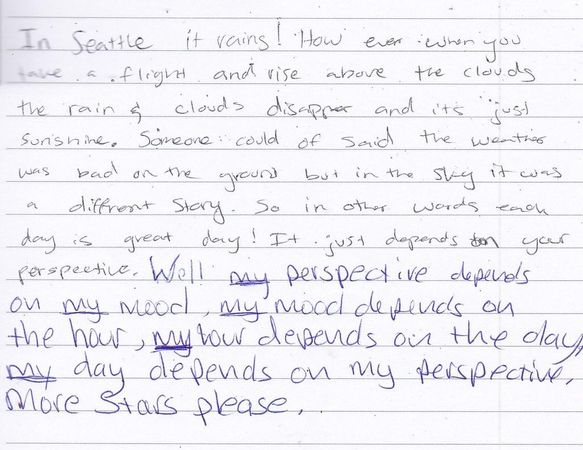 In Seattle it rains! How ever when you
take a flight and rise above the clouds
the rain & clouds disapper and its just
sunshine. Someone could of said the weather
was bad on the ground but in the sky it was
a different story. So in other words each
day is great day! It just depends on your
perspective. Well my perspective depends
on my mood, my mood depends on
the hour, my hour depends on the day,
my day depends on my perspective.
More Stars please.